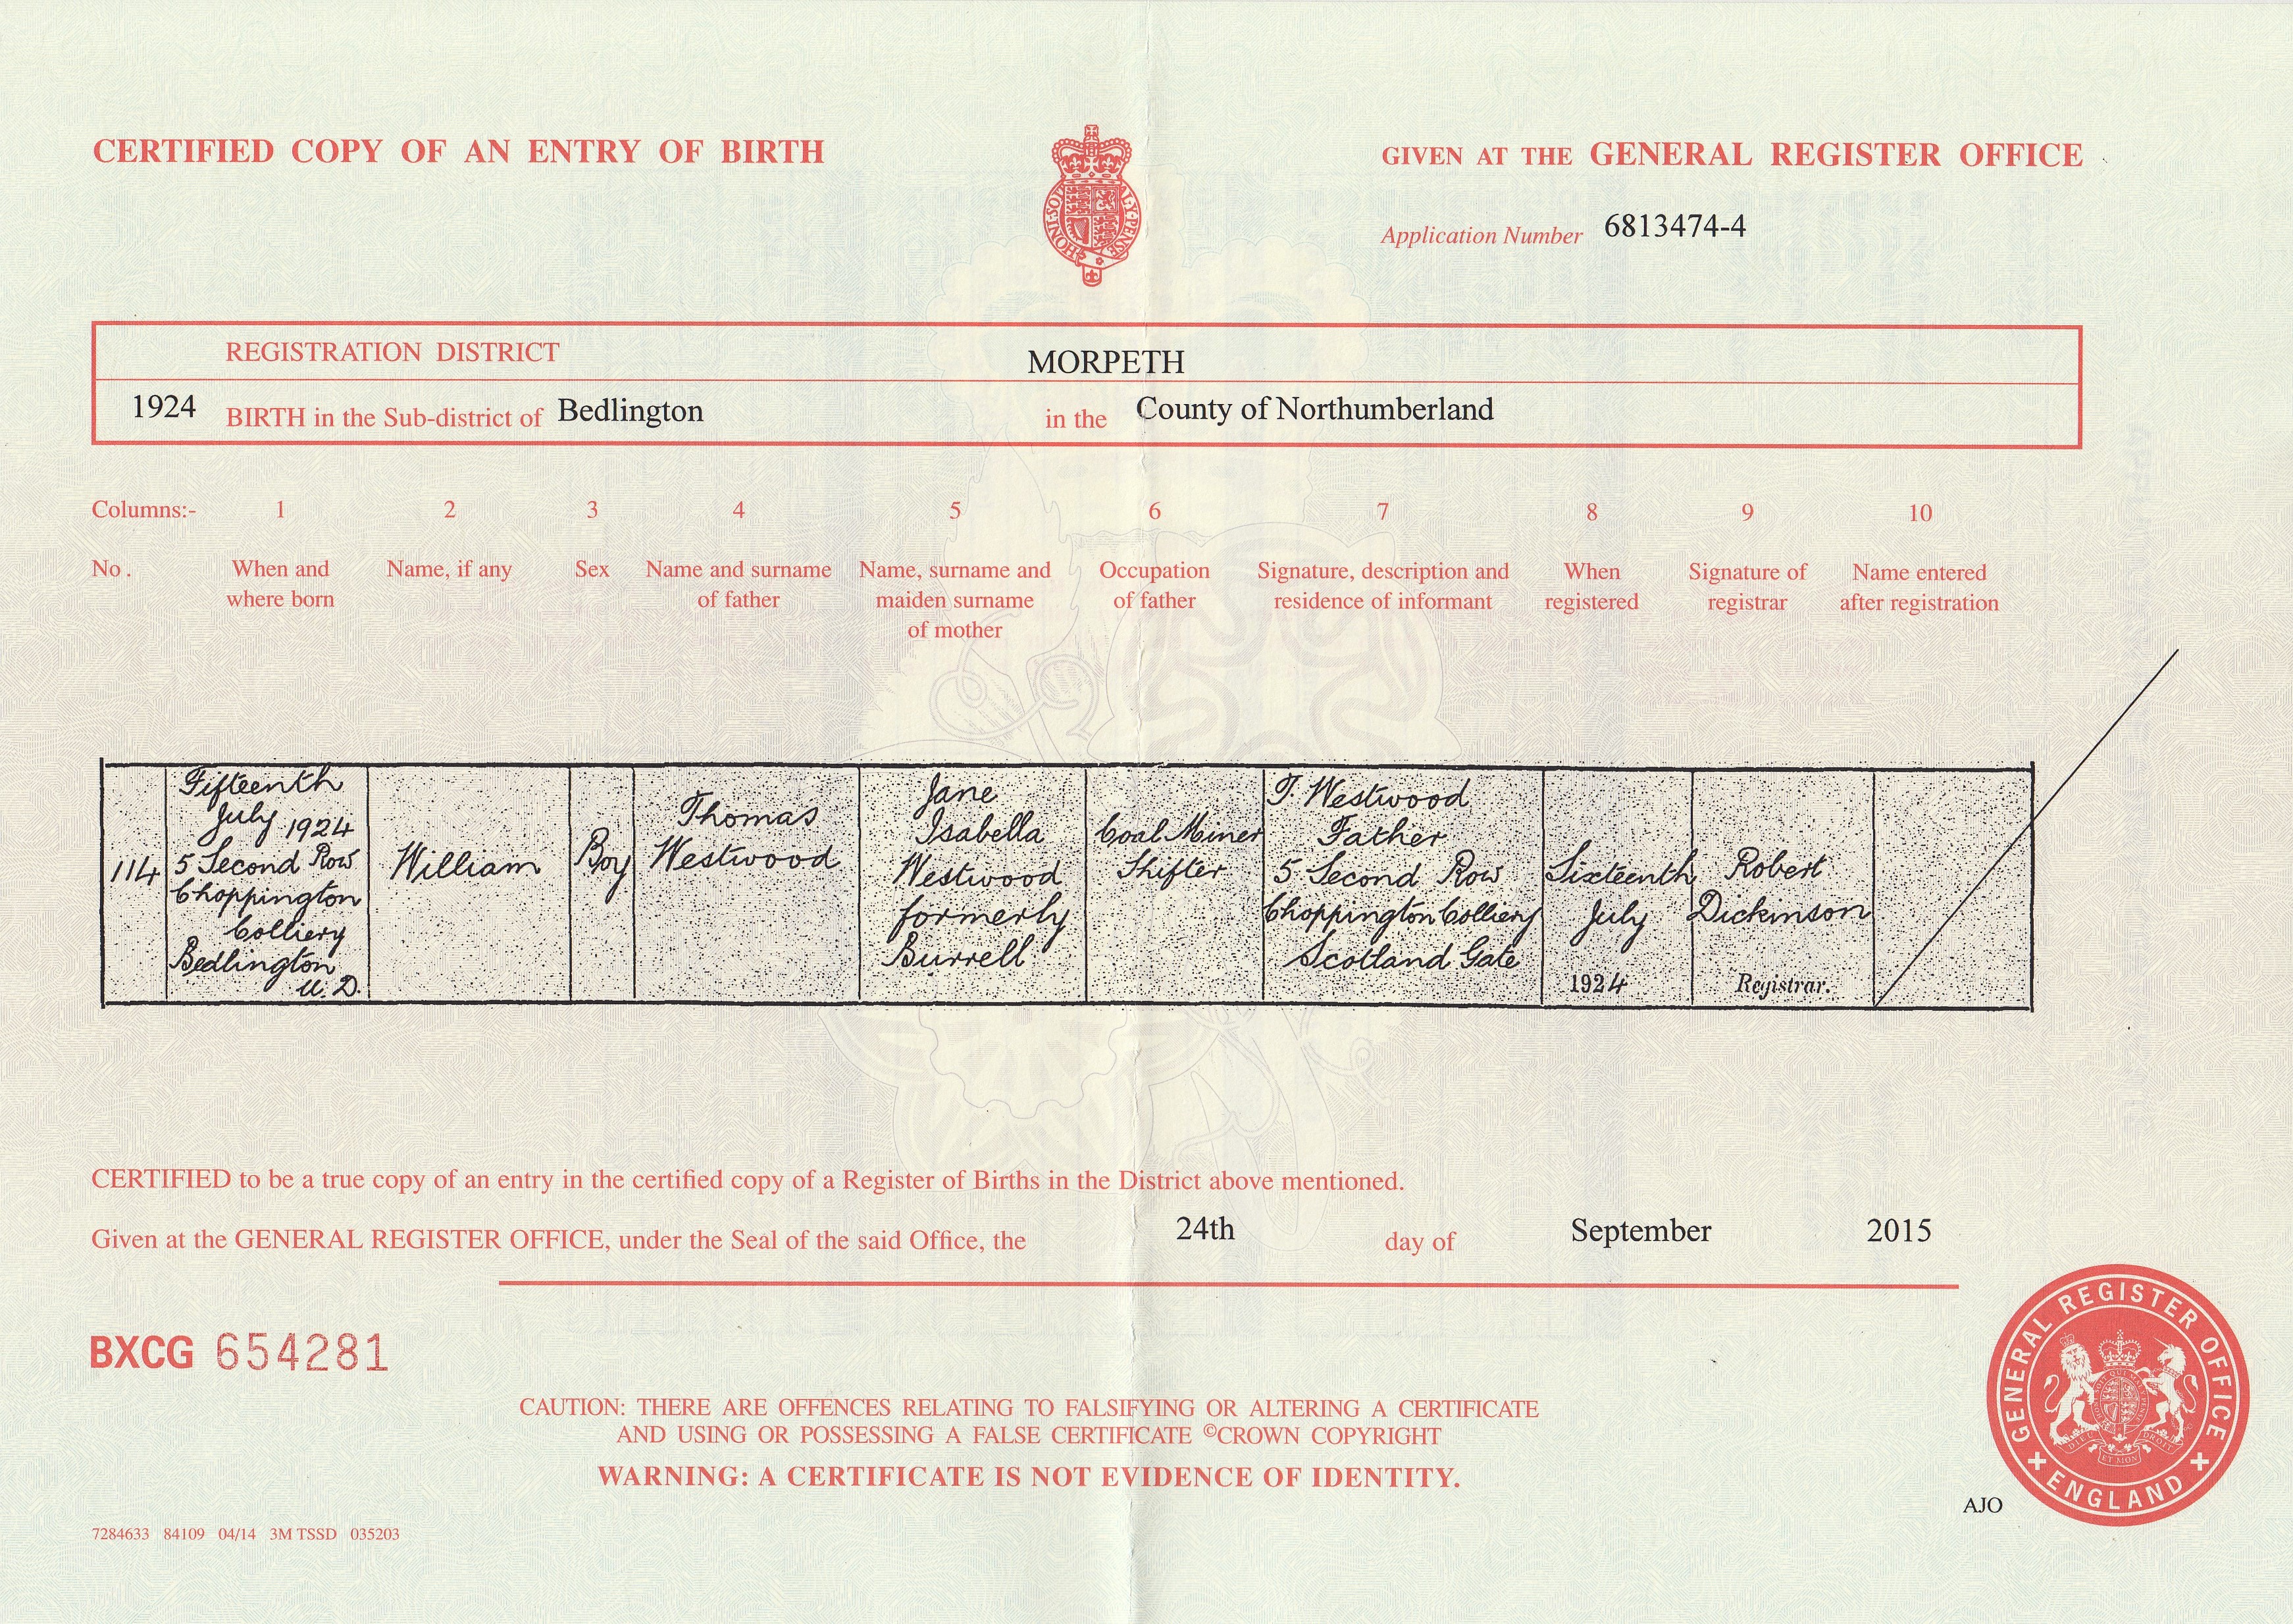 CERTIFIED COPY OF AN ENTRY OF BIRTH
GIVEN AT THE GENERAL REGISTER OFFICE
HONI·SOIT
AL·Y·PENSE
Application Number 6813474-4
REGISTRATION DISTRICT MORPETH
1924 BIRTH in the Sub-district of Bedlington in the County of Northumberland
Columns:- 1 2 3 4 5 6 7 8 9 10
No. When and where born
Name, if any
Sex
Name and surname of father
Name, surname and maiden surname of mother
Occupation of father
Signature, description and residence of informant
When registered
Signature of registrar
Name entered after registration
114
Fifteenth
July 1924
5 Second Row
Choppington
Colliery
Bedlington
U. D.
William
Boy
Thomas
Westwood
Jane
Isabella
Westwood
formerly
Burrell
Coal Miner
Shifter
T. Westwood
Father
5 Second Row
Choppington Colliery
Scotland Gate
Sixteenth
July
1924
Robert
Dickinson
Registrar.
CERTIFIED to be a true copy of an entry in the certified copy of a Register of Births in the District above mentioned.
Given at the GENERAL REGISTER OFFICE, under the Seal of the said Office, the 24th day of September 2015
BXCG 654281
CAUTION: THERE ARE OFFENCES RELATING TO FALSIFYING OR ALTERING A CERTIFICATE
AND USING OR POSSESSING A FALSE CERTIFICATE ©CROWN COPYRIGHT
WARNING: A CERTIFICATE IS NOT EVIDENCE OF IDENTITY.
GENERAL REGISTER OFFICE
ENGLAND
AJO
7284633 84109 04/14 3M TSSD 035203